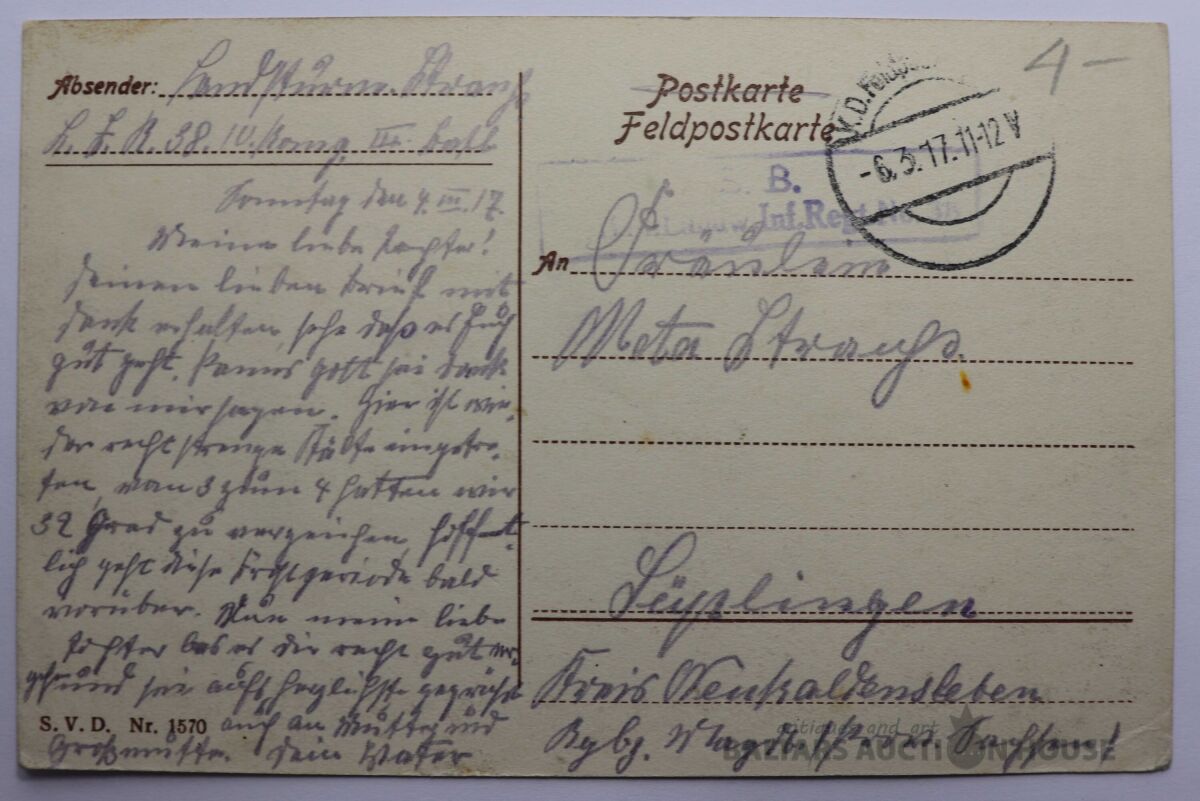 Absender: Landsturm. Strauß
L. I. R. 38. IV. Komp. III. Batl
Sonntag den 4. III. 17.
Meine liebe Tochter!
Deinen lieben Brief mit
Dank erhalten, sehe daß es Euch
gut geht, kann es Gott sei Dank
von mir sagen. Hier ist wie-
der recht strenge Kälte eingetre-
ten, vom 3 zum 4 hatten wir
32 Grad zu verzeichen, hoffent-
lich geht diese Frostperiode bald
vorüber. Nun meine liebe
Tochter las es dir recht gut er-
gehn und sei aufs herzlichste gegrüßt
auch an Mutter und
Großmutter. Dein Vater
S. V. D. Nr. 1570
Postkarte
Feldpostkarte
4-
-6.3.17.11-12 V
S. B.
Landw. Inf. Regt. No. 38
An Fräulein
Meta Strauß.
Süplingen
Kreis Neuhaldensleben
Rgbz. Magdeburg Prov. Sachsen!
antique and art
BALTARS AUCTION HOUSE